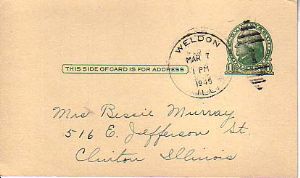 WELDON
MAR 7
1 PM
ILL.
THIS SIDE OF CARD IS FOR ADDRESS
Mrs Bessie Murray
516 E. Jefferson St.
Clinton Illinois